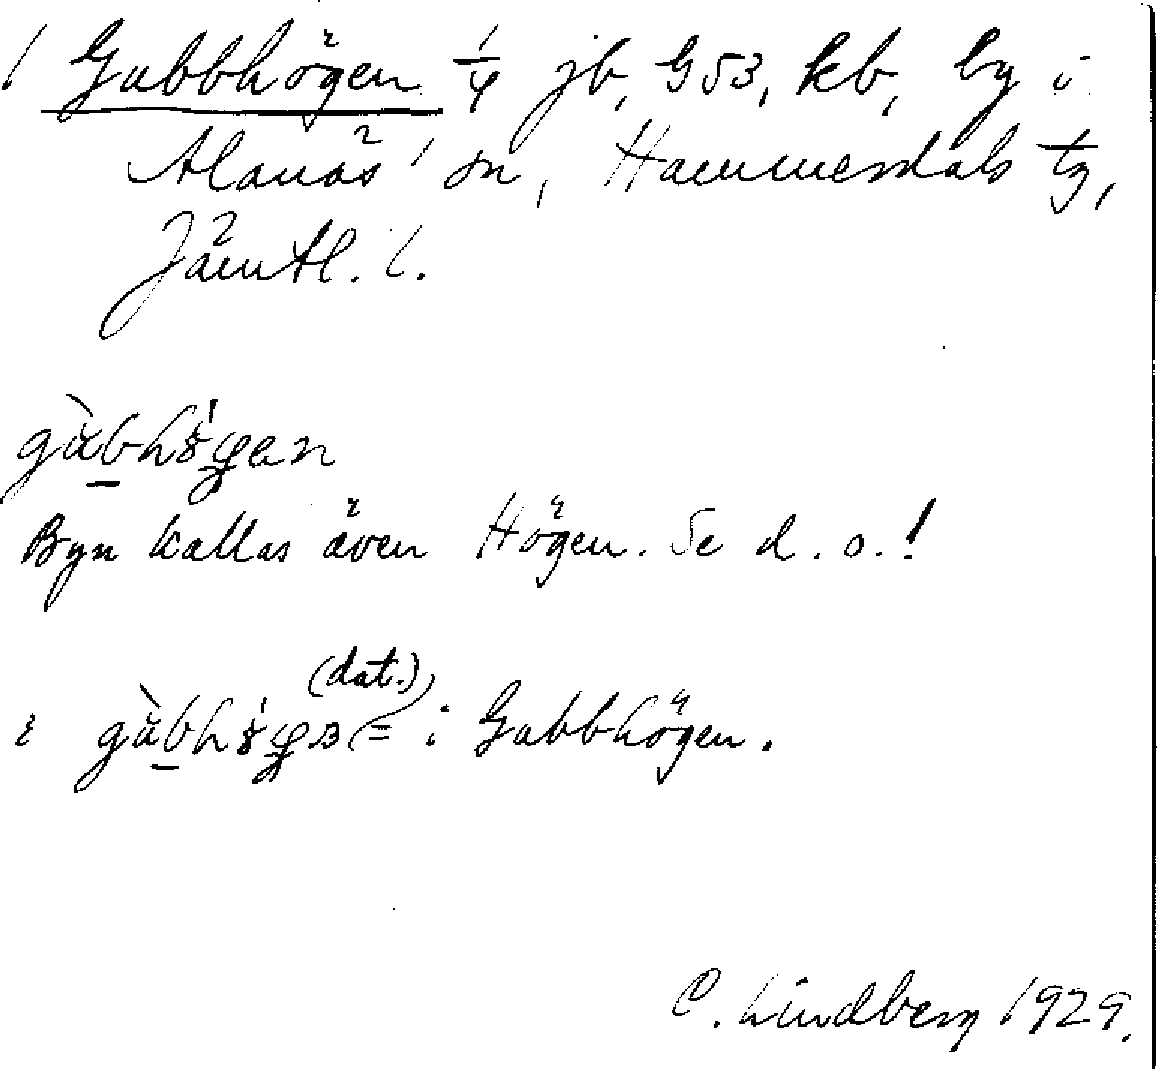 1 Gubbhögen 1/4 jb, G53, kb, by i
Alanäs' sn, Hammerdals tg,
Jämtl. l.
Byn kallas även Högen. Se d. o.!
(dat.)
i = i Gubbhögen.
C. Lindberg 1929.